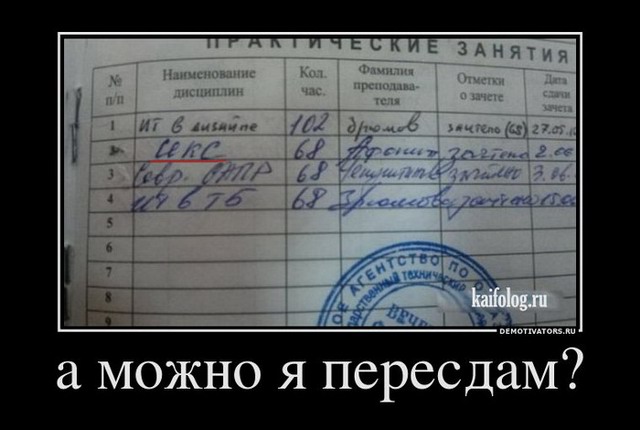 ПРАКТИЧЕСКИЕ ЗАНЯТИЯ
№ п/п Наименование дисциплин Кол. час. Фамилия преподава- теля Отметки о зачете Дата сдачи зачета
1 ИТ в дизайне 102 зачтено (68) 27.05.
ИКС 68 зачтено 2.06
3 Совр. САПР 68 зачтено 3.06.
4 ИТ в ТБ 68 зачтено
5
6
7
8
9
АГЕНТСТВО ПО О
ТЕХНИЧЕСКИЙ
ВЕЧЕ
kaifolog.ru
DEMOTIVATORS.RU
а можно я пересдам?